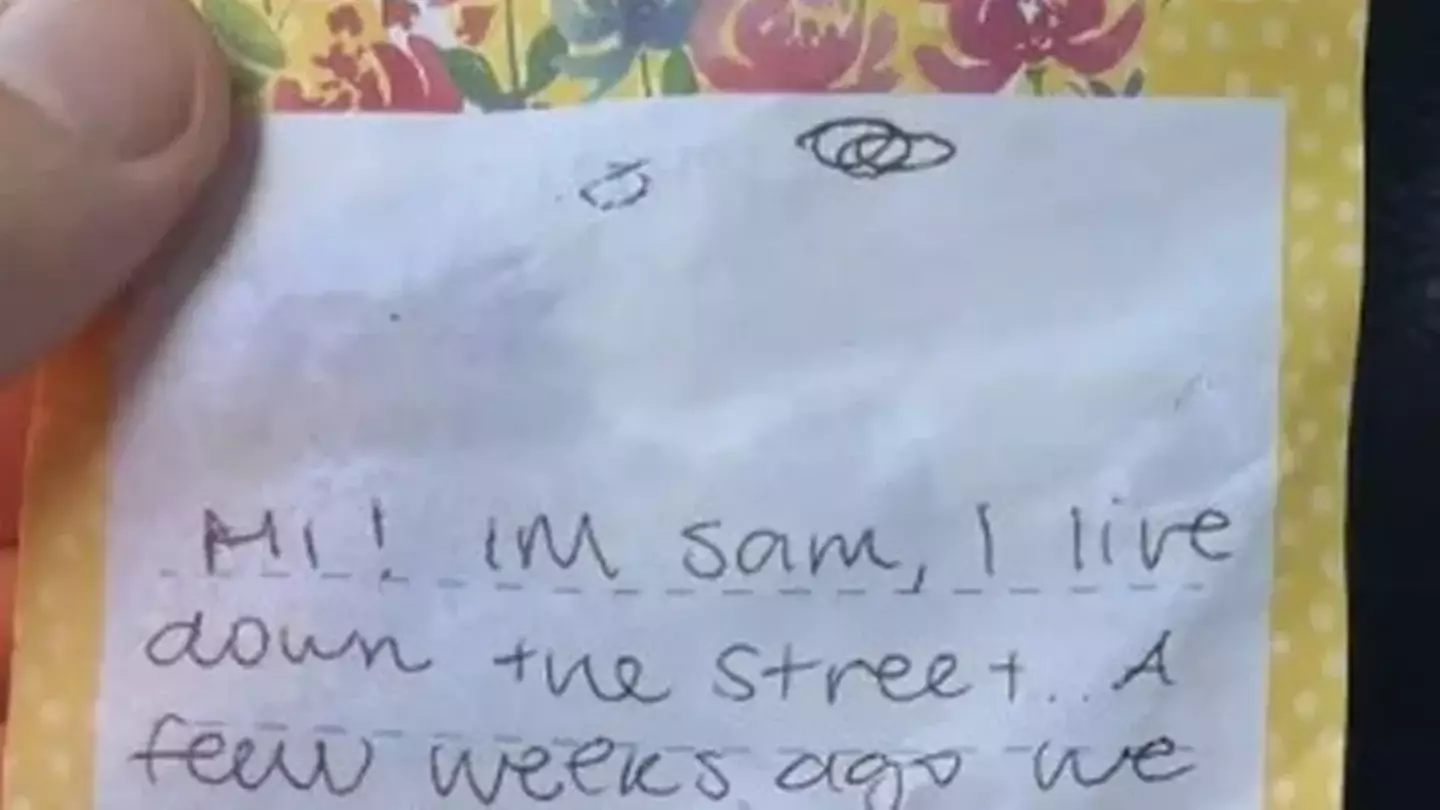 Hi! IM sam, I live
down the street... A
few weeks ago we